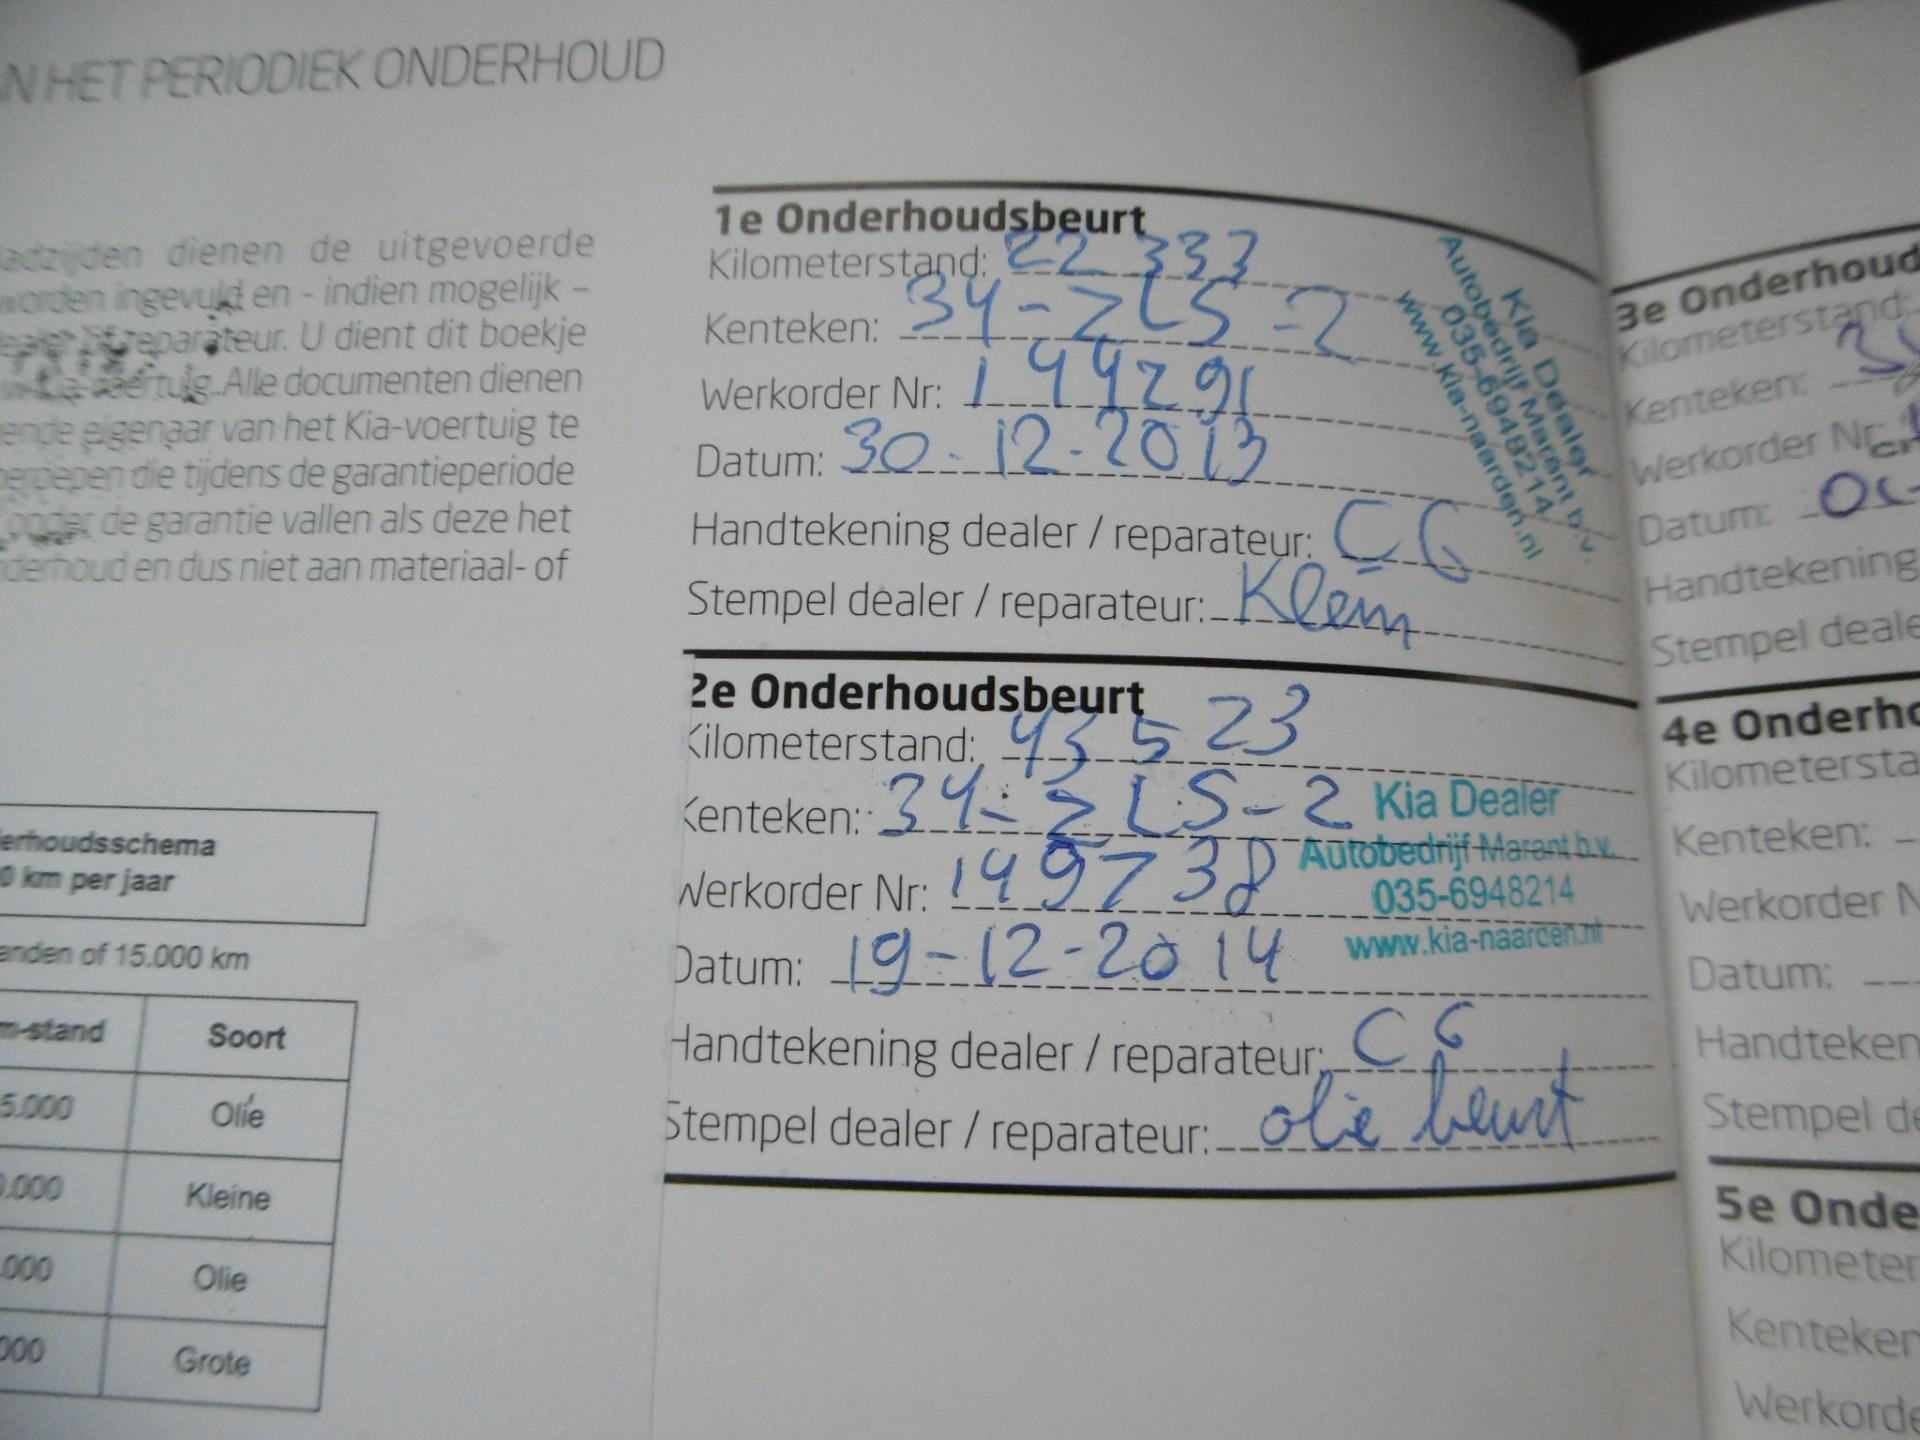 AN HET PERIODIEK ONDERHOUD
dienen de uitgevoerde
worden ingevuld en - indien mogelijk –
reparateur. U dient dit boekje
Alle documenten dienen
eigenaar van het Kia-voertuig te
die tijdens de garantieperiode
onder de garantie vallen als deze het
en dus niet aan materiaal- of
erhoudsschema
0 km per jaar
anden of 15.000 km
m-stand Soort
5.000 Olie
0.000 Kleine
.000 Olie
000 Grote
1e Onderhoudsbeurt
Kilometerstand: 22 333
Kenteken: 34-ZLS-2
Werkorder Nr: 144291
Datum: 30-12-2013
Handtekening dealer / reparateur: CG
Stempel dealer / reparateur: Klein
Kia Dealer
Autobedrijf Marant b.v.
035-6948214
www.kia-naarden.nl
2e Onderhoudsbeurt
Kilometerstand: 43 523
Kenteken: 34-ZLS-2
Werkorder Nr: 149738
Datum: 19-12-2014
Handtekening dealer / reparateur: CG
Stempel dealer / reparateur: olie beurt
Kia Dealer
Autobedrijf Marant b.v.
035-6948214
www.kia-naarden.nl
3e Onderhoud
Kilometerstand:
Kenteken:
Werkorder Nr:
Datum:
Handtekening
Stempel deale
4e Onderho
Kilometersta
Kenteken:
Werkorder N
Datum:
Handteken
Stempel de
5e Onde
Kilometer
Kenteken
Werkorde